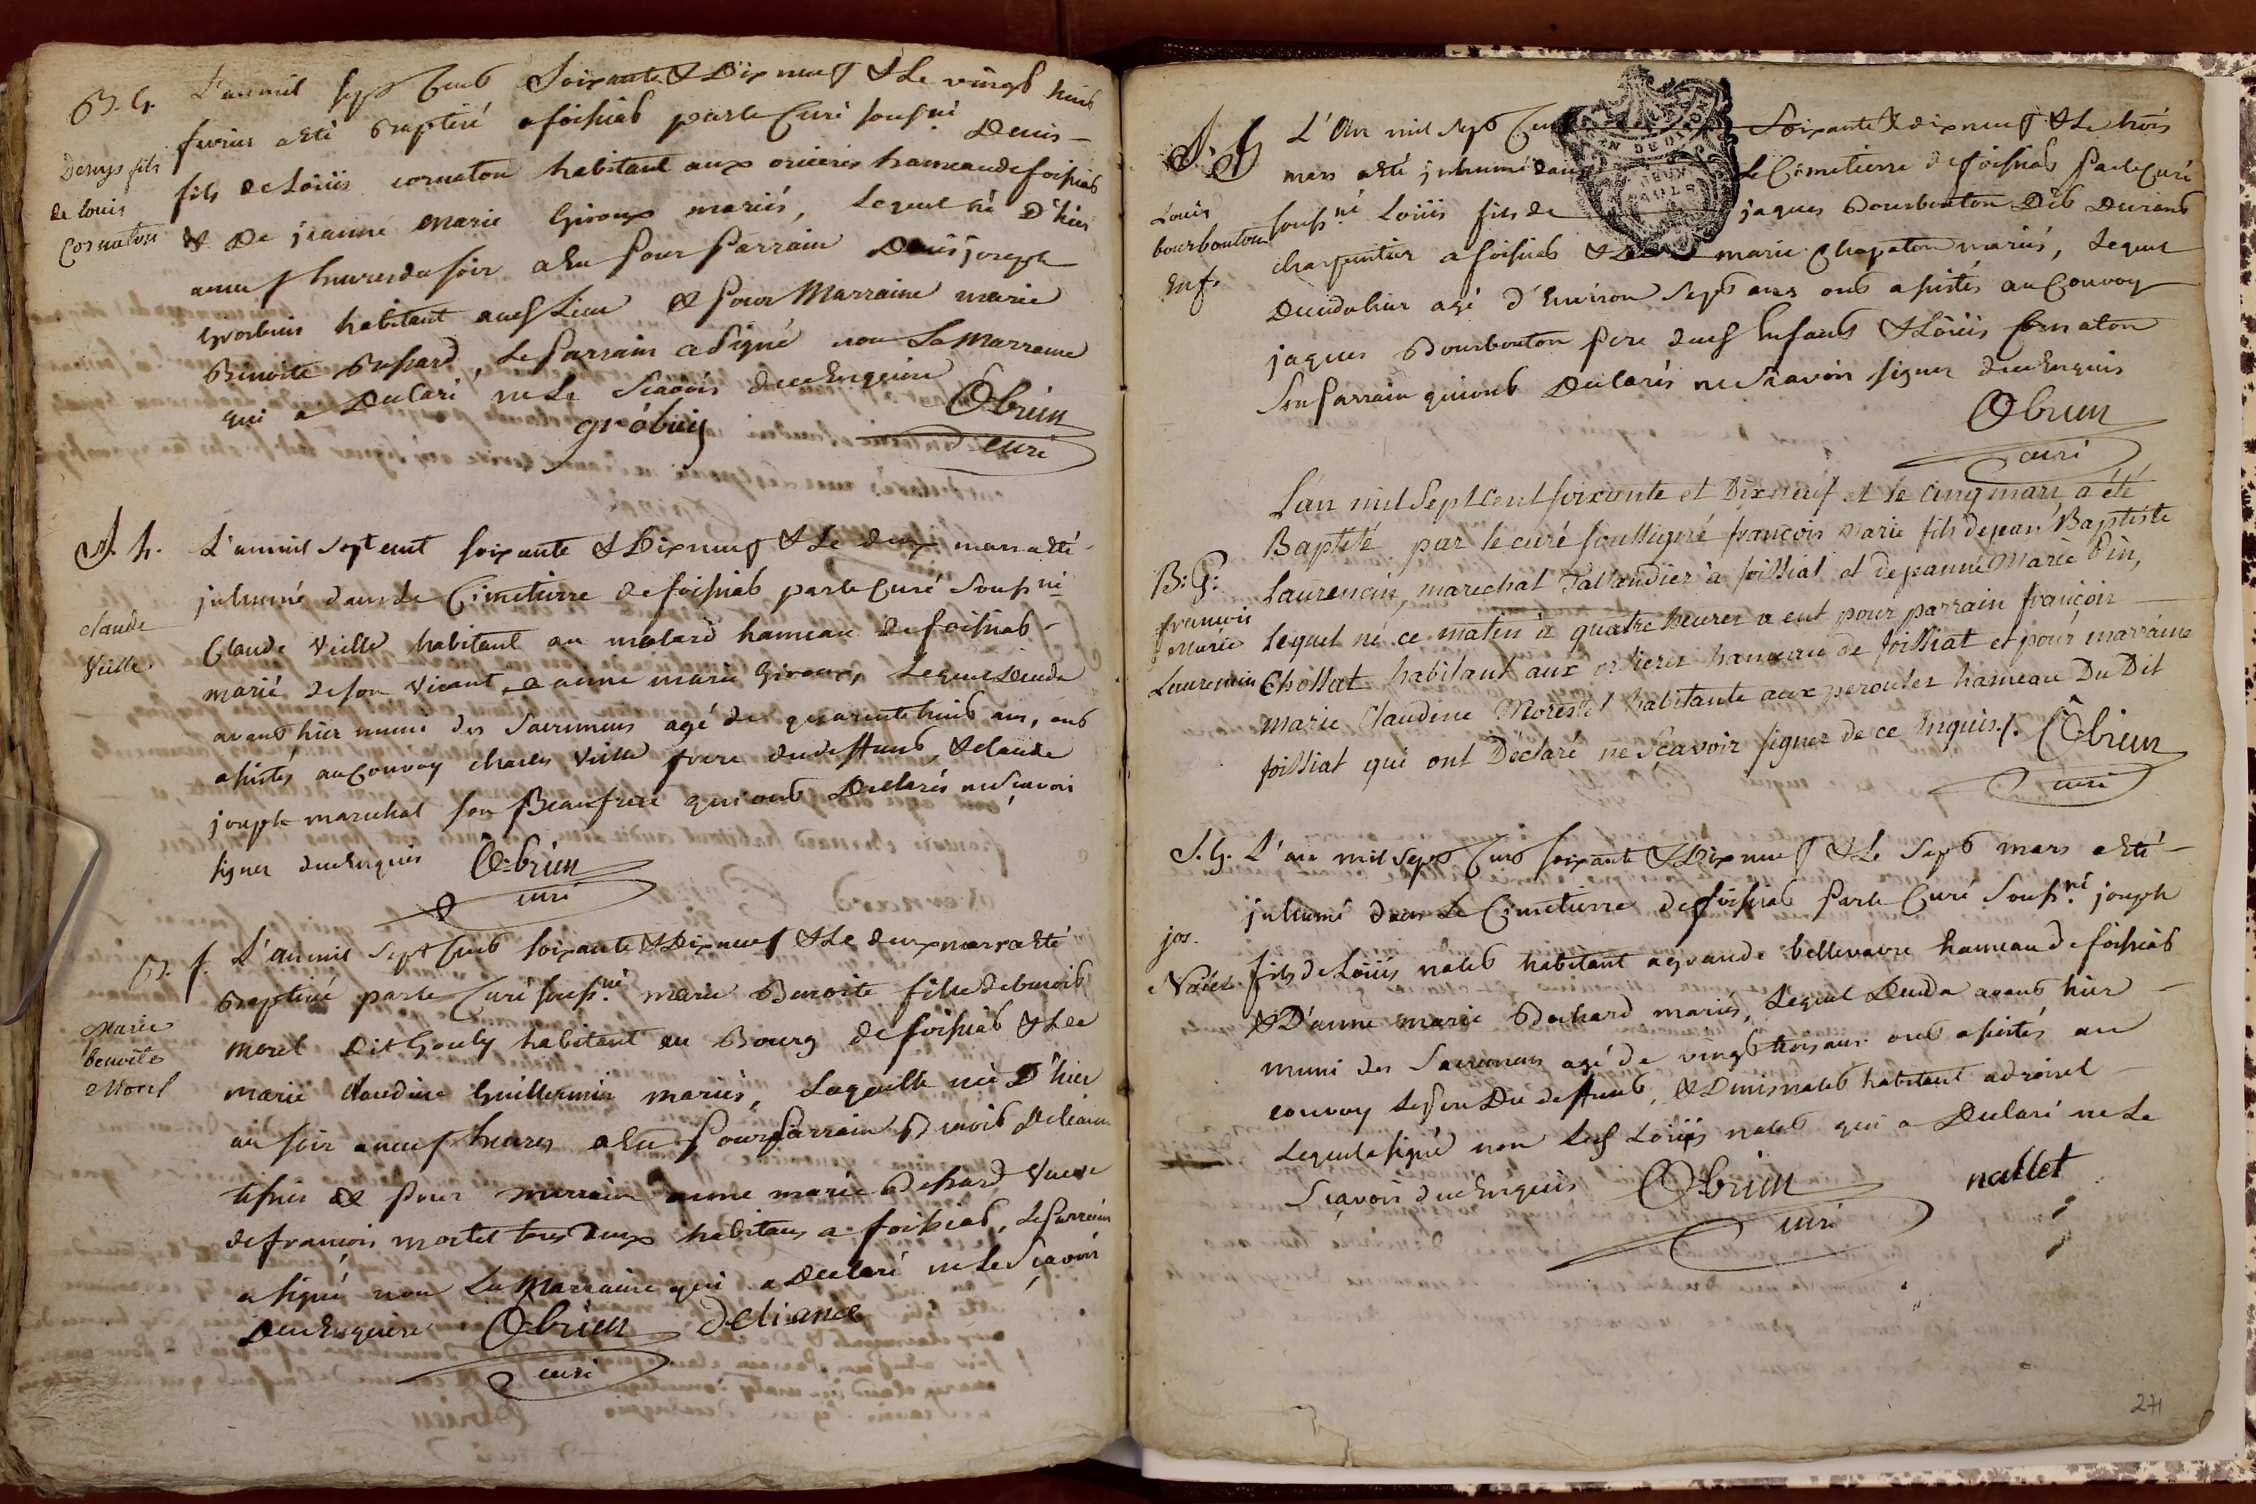 B. G.
Denys fils
de louis
Cornaton
L'an mil sept Cens Soixante & Dix neuf & Le vingt huit
fevrier a été Baptisé a foissiat par le Curé souss.né Denis
fils de Loüis cornaton habitant aux orcieres hameau de foissiat
& De jeanne marie Giroux mariés, Lequel né D'hier
a neuf heures du soir a Eu pour Parrain Denis joseph
Grobuis habitant aud.t Lieu & pour Marraine marie
Benoite Buffard, Le Parrain a signé non La Marraine
qui a Declaré ne Le Scavoir de ce Enquise
gróbuis Obrien
curé
S. h.
claude
Vielle
L'an mil Sept cent soixante & Dix neuf & Le deux mars a été
inhumé dans Le Cimetierre de foissiat par le Curé Souss.né
Claude Vielle habitant au molard hameau de foissiat
marié de son vivant a anne marie Giroux, Lequel Deceda
avant hier muni des Sacremens agé de quarante huit ans, ont
assistés au Convoy charles Vielle frere dud deffunt & claude
joseph marechal son Beaufrere qui ont Declarés ne Sçavoir
signer de ce Enquis Obrien
curé
B. f.
Marie
benoîte
Morel
L'an mil Sept Cens soixante & Dix neuf & Le deux mars a été
Baptisée par le Curé souss.né marie Benoite fille de benoit
morel Dit Gouly habitant au Bourg de foissiat & De
marie claudine Guillermin mariés, Laquelle née D'hier
au soir a neuf heures a Eu pour parrain Benoit Deliance
tissier & pour marraine anne marie Buffard Veuve
de francois mortel tous deux habitans a foissiat, Le Parrain
a signé non La Marraine qui a Declaré ne Le Sçavoir
De ce Enquise Obrien deliance
curé
S. G
Louis
bourbouton
Enf.
L'An mil Sept Cens Soixante & dix neuf & Le trois
mars a été inhumé dans Le Cimetierre de foissiat Par le Curé
souss.né Loüis fils de jaques Bourbouton Dit Durand
charpentier a foissiat & De marie Chapaton mariés, Lequel
Deceda hier agé d'Environ Sept ans ont assistés au Convoy
jaques Bourbouton pere dud.t Enfant & Loüis Cornaton
Son parrain qui ont Declarés ne Scavoir signer de ce Enquis
Obrien
curé
B: G:
francois
Marie
Laurencin
L'an mil Sept Cent soixante et Dix neuf et le Cinq mars a été
Baptisé par le curé soussigné françois Marie fils de jean Baptiste
Laurencin, marechal Taillandier à foissiat et de jeanne Marie Pin,
lequel né ce matin à quatre heures a eut pour parrain françois
Chossat habitant aux orcieres hameau de foissiat et pour marraine
marie Claudine Morestel habitante aux peroutes hameau Du Dit
foissiat qui ont Déclaré ne Sçavoir signer de ce Enquis ./. Obrien
curé
S. G.
jos.
Nalet
L'an mil Sept Cens soixante & Dix neuf & Le Sept mars a été
inhumé dans Le Cimetierre de foissiat Par le Curé Souss.né joseph
fils de Loüis nalet habitant a grande bellevavre hameau de foissiat
& D'anne marie Bochard mariés, Lequel Deceda avant hier
muni des Sacremens agé de vingt trois ans ont assistés au
convoy Le pere Du deffunt, & Denis nalet habitant
Lequel a signé non Led.t Loüis nalet qui a Declaré ne Le
Sçavoir de ce Enquis Obrien nallet
curé
271